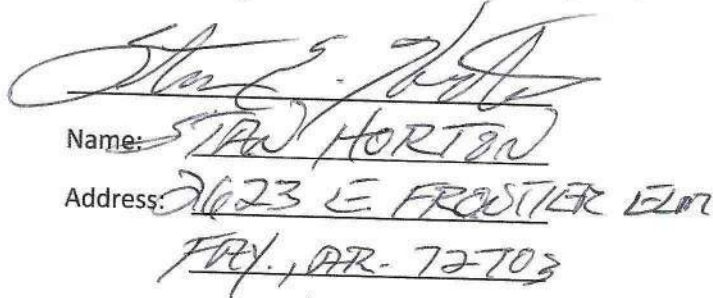 Stan E. Horton
Name: STAN HORTON
Address: 2623 E. FRONTIER ELM
FAY., AR. 72703